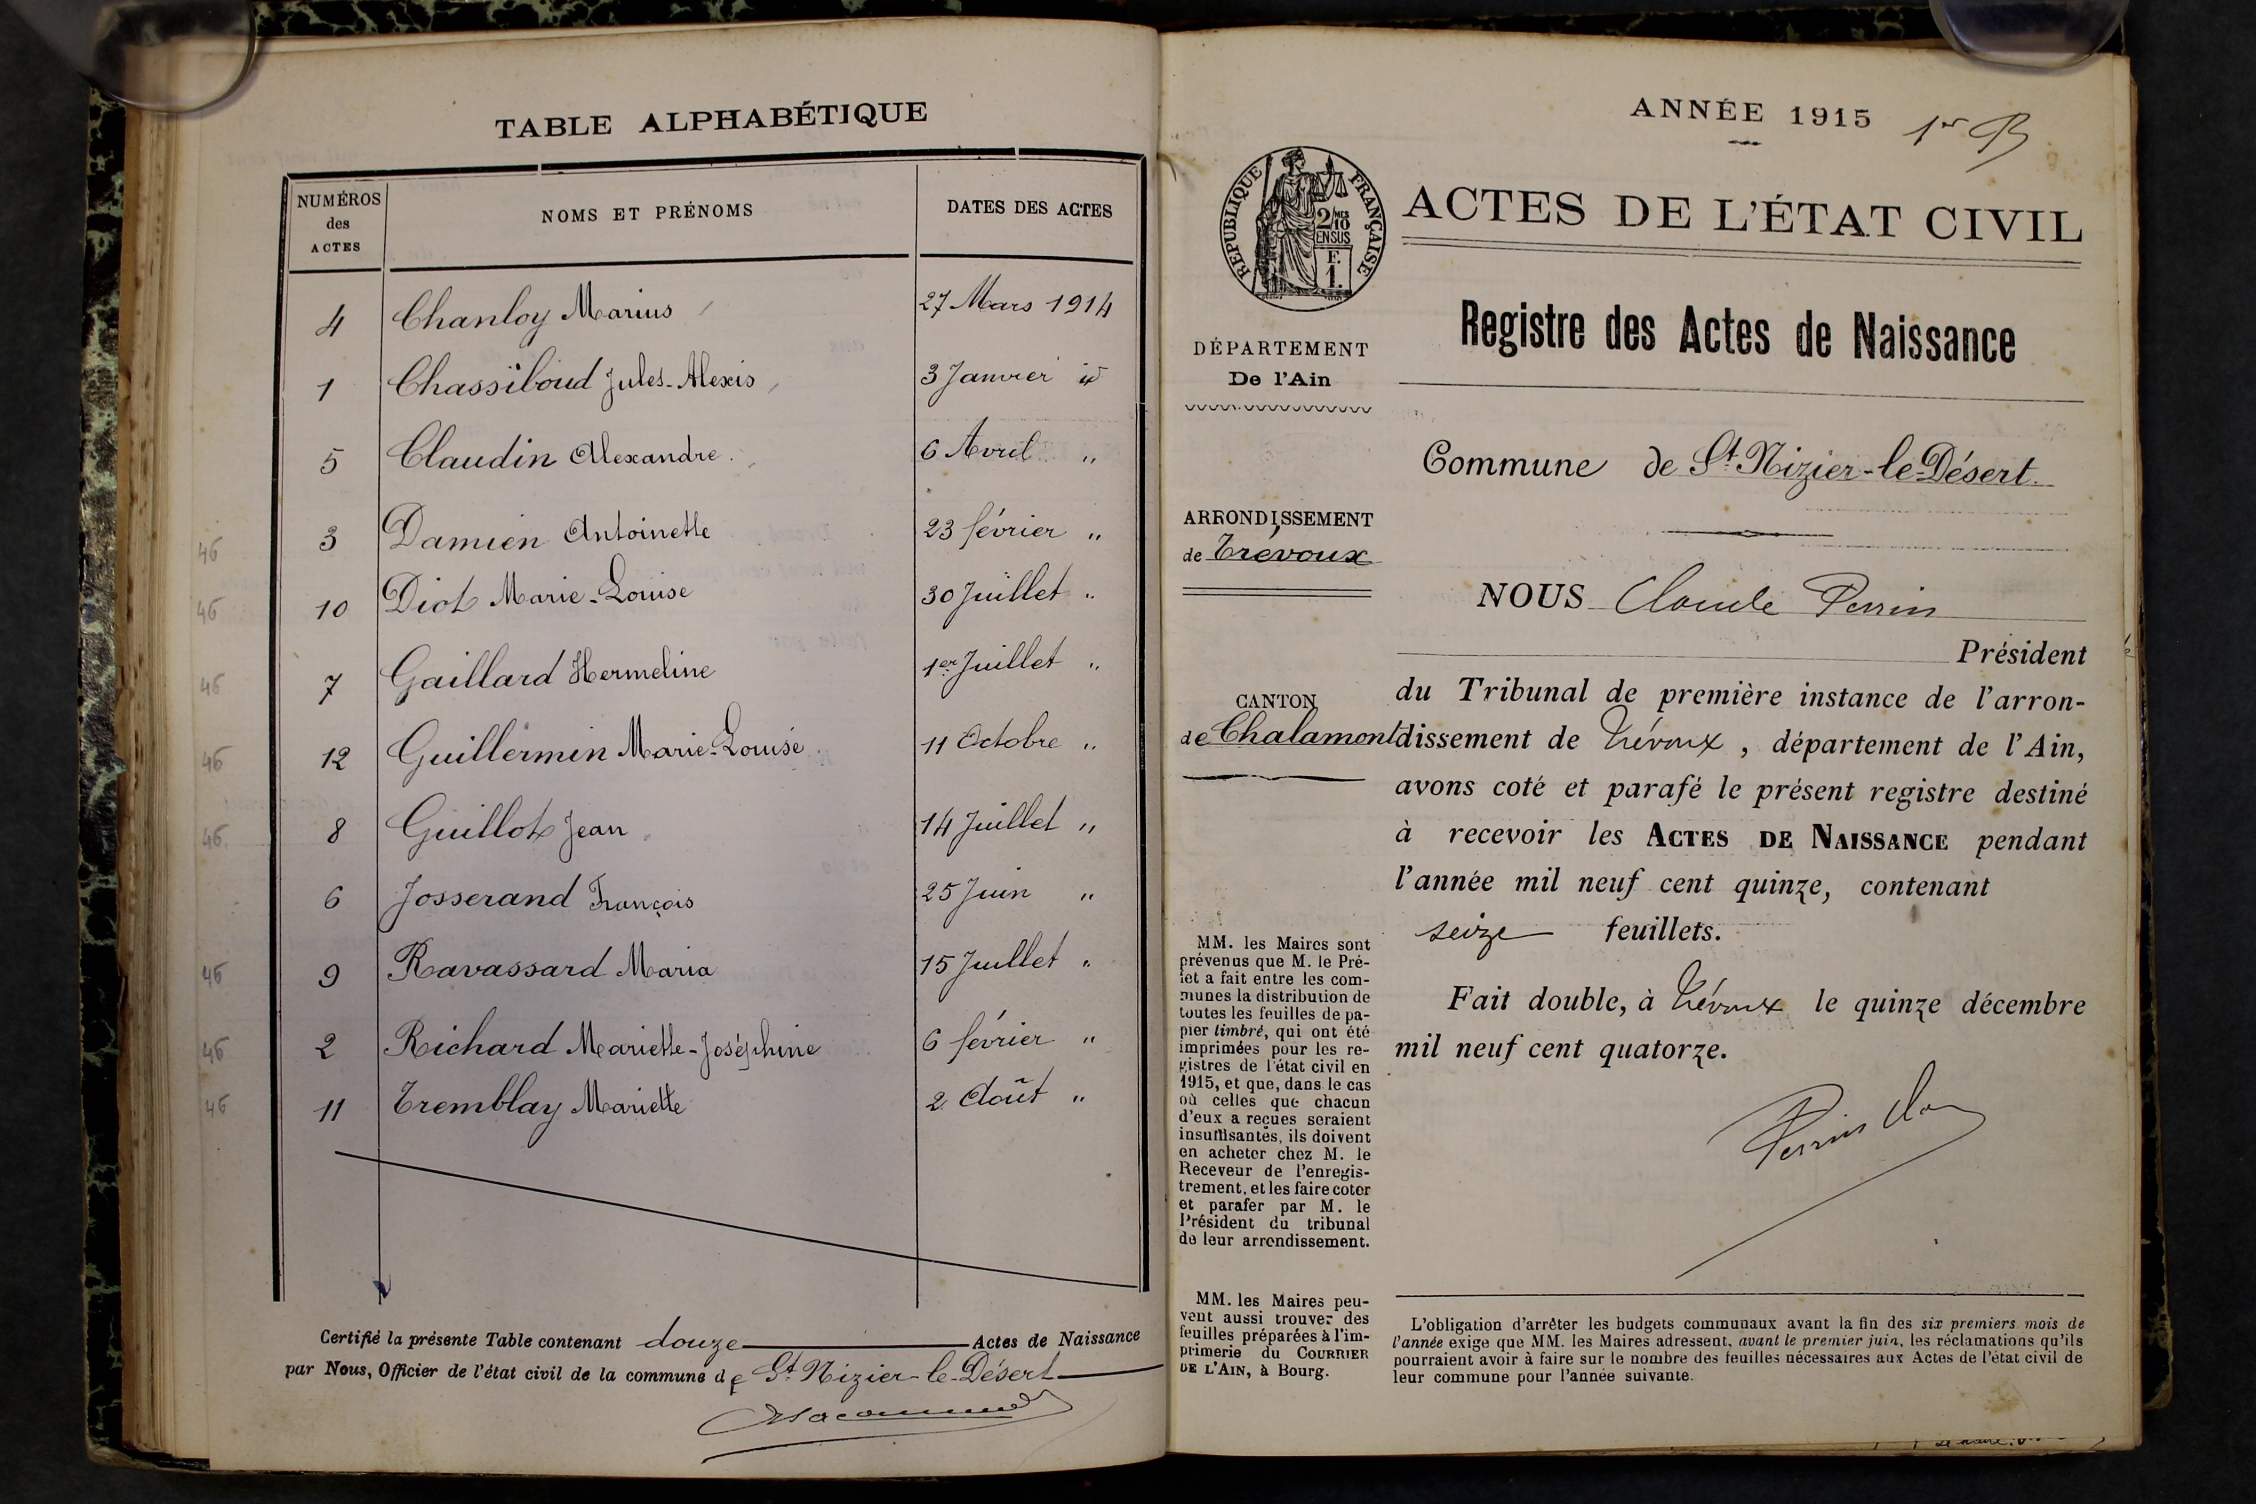 TABLE ALPHABÉTIQUE
NUMÉROS des ACTES | NOMS ET PRÉNOMS | DATES DES ACTES
4 Chanloy Marius 27 Mars 1914
1 Chassiboud Jules-Alexis 3 Janvier id
5 Claudin Alexandre. 6 Avril "
46 3 Damien Antoinette 23 février "
46 10 Diot Marie-Louise 30 Juillet "
46 7 Gaillard Hermeline 1er Juillet "
46 12 Guillermin Marie-Louise 11 Octobre "
46 8 Guillot Jean 14 Juillet "
6 Josserand François 25 Juin "
46 9 Ravassard Maria 15 Juillet "
46 2 Richard Mariette-Joséphine 6 février "
46 11 Tremblay Mariette 2 Août "
Certifié la présente Table contenant douze Actes de Naissance
par Nous, Officier de l'état civil de la commune de St Nizier-le-Désert
ANNÉE 1915 1er
RÉPUBLIQUE FRANÇAISE
2/10 MES
EN SUS
F.
1.
ACTES DE L'ÉTAT CIVIL
Registre des Actes de Naissance
DÉPARTEMENT
De l'Ain
ARRONDISSEMENT
de Trévoux
CANTON
de Chalamont
MM. les Maires sont
prévenus que M. le Pré-
fet a fait entre les com-
munes la distribution de
toutes les feuilles de pa-
pier timbré, qui ont été
imprimées pour les re-
gistres de l'état civil en
1915, et que, dans le cas
où celles que chacun
d'eux a reçues seraient
insuffisantes, ils doivent
en acheter chez M. le
Receveur de l'enregis-
trement, et les faire coter
et parafer par M. le
Président du tribunal
de leur arrondissement.
MM. les Maires peu-
vent aussi trouver des
feuilles préparées à l'im-
primerie du COURRIER
DE L'AIN, à Bourg.
Commune de St Nizier-le-Désert.
NOUS Claude Perrin
Président
du Tribunal de première instance de l'arron-
dissement de Trévoux, département de l'Ain,
avons coté et parafé le présent registre destiné
à recevoir les ACTES DE NAISSANCE pendant
l'année mil neuf cent quinze, contenant
seize feuillets.
Fait double, à Trévoux le quinze décembre
mil neuf cent quatorze.
Perrin
L'obligation d'arrêter les budgets communaux avant la fin des six premiers mois de
l'année exige que MM. les Maires adressent, avant le premier juin, les réclamations qu'ils
pourraient avoir à faire sur le nombre des feuilles nécessaires aux Actes de l'état civil de
leur commune pour l'année suivante.